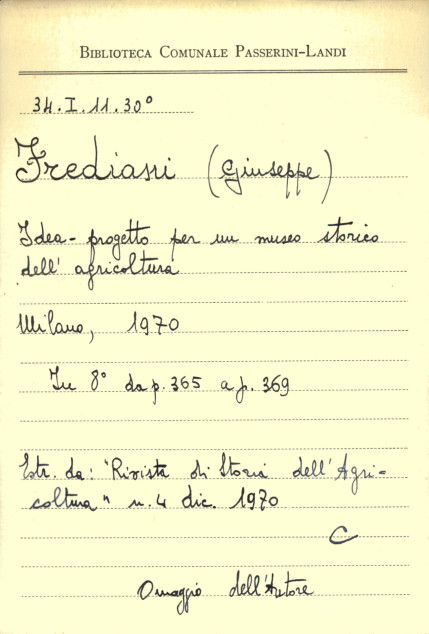 BIBLIOTECA COMUNALE PASSERINI-LANDI
34.I.11.30°
Frediani (Giuseppe)
Idea-progetto per un museo storico
dell'agricoltura
Milano, 1970
In 8° da p. 365 a p. 369
Estr. da: "Rivista di Storia dell'Agri-
coltura" n. 4 dic. 1970
C
Omaggio dell'Autore